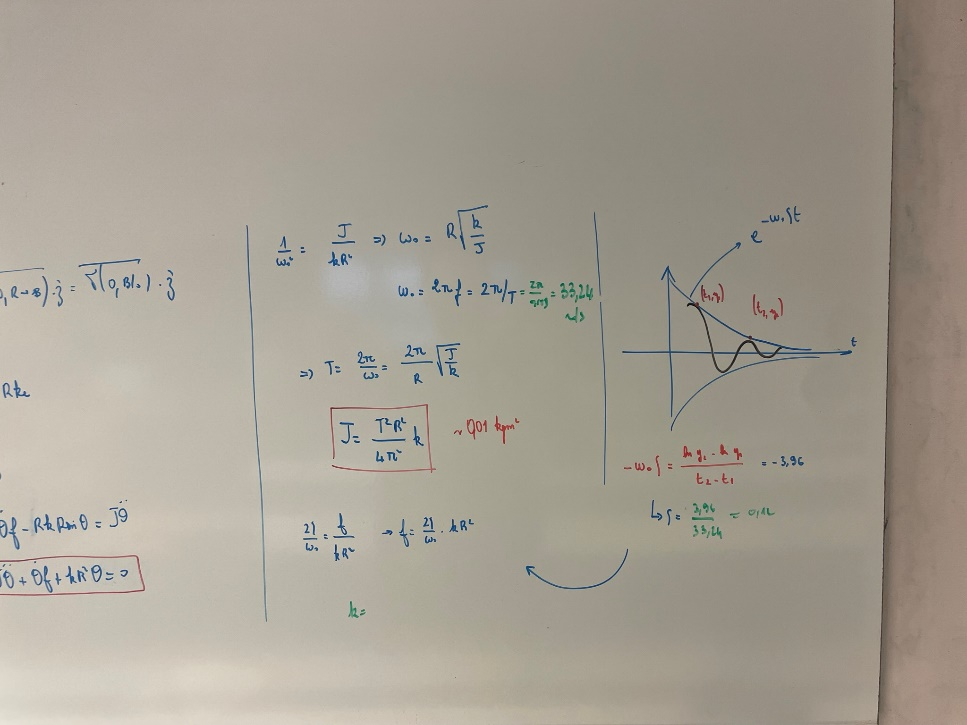 0,R→B).ȷ̂ = τ(0,B/0).ȷ̂
Rke
θ̇f - RkRsinθ = Jθ̈
Jθ̈ + θ̇f + kR²θ = 0
1/ω₀² = J/kR² => ω₀ = R√(k/J)
ω₀ = 2πf = 2π/T = = 33,24
r/s
=> T = 2π/ω₀ = 2π/R √(J/k)
J = T²R²/4π² k ~ 0,01 kgm²
2ζ/ω₀ = f/kR² → f = 2ζ/ω₀ · kR²
k =
e^-ω₀ζt
t
-ω₀ζ = ln y₂ - ln y₁ / t₂ - t₁ = -3,96
↳ ζ = 3,96/33,24 = 0,12